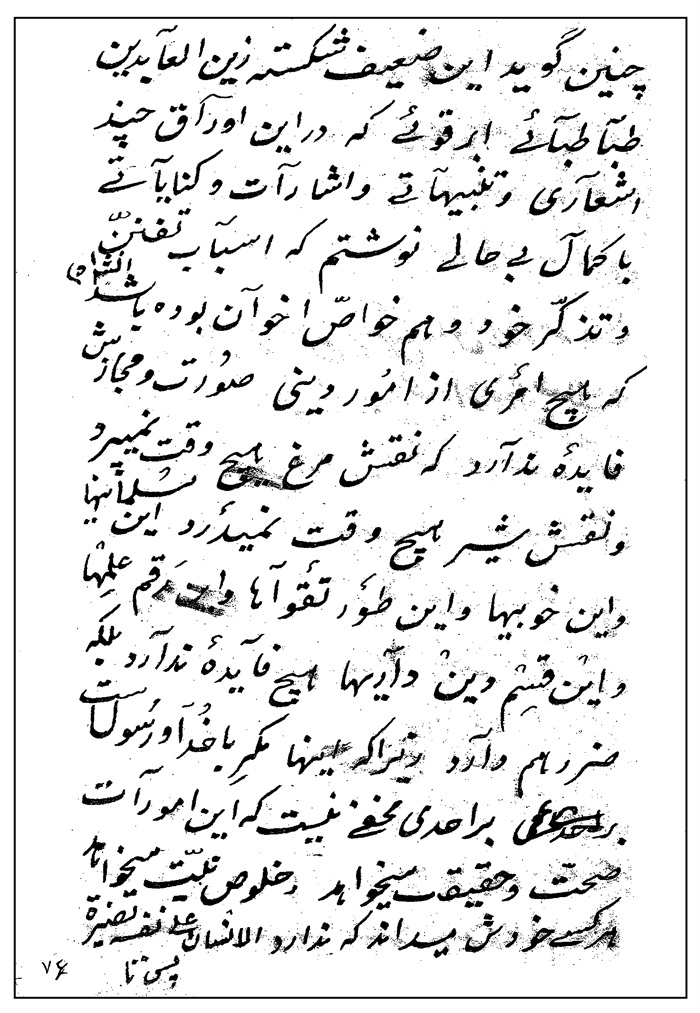 چنین گوید این ضعیف شکسته زین العابدین
طباطبائے ابرقوئے که در این اوراق چند
اشعاری و تنبیهاتے و اشارات و کنایاتے
با کمال بے حالے نوشتم که اسباب تفنن
و تذکّر خود و هم خواصّ اخوان بوده باشد انشاء الله
که هیچ امری از امور دینی صورت و مجازش
فایدهٔ ندارد که نقش مرغ هیچ وقت نمیپرد
و نقش شیر هیچ وقت نمیدَرد این مسلمانیها
و این خوبیها و این طور تقواها و این رقم علمها
و این قسم دین داریها هیچ فایدهٔ ندارد بلکه
ضرر هم دارد زیرا که اینها مکرِ با خدا و رسول است
بر احدی مخفے نیست که این امورات
صحّت و حقیقت میخواهد و خلوص نیّت میخواهد
هر کسے خودش میداند که ندارد الانسان علی نفسه بصیرة
پس تا
۷۶